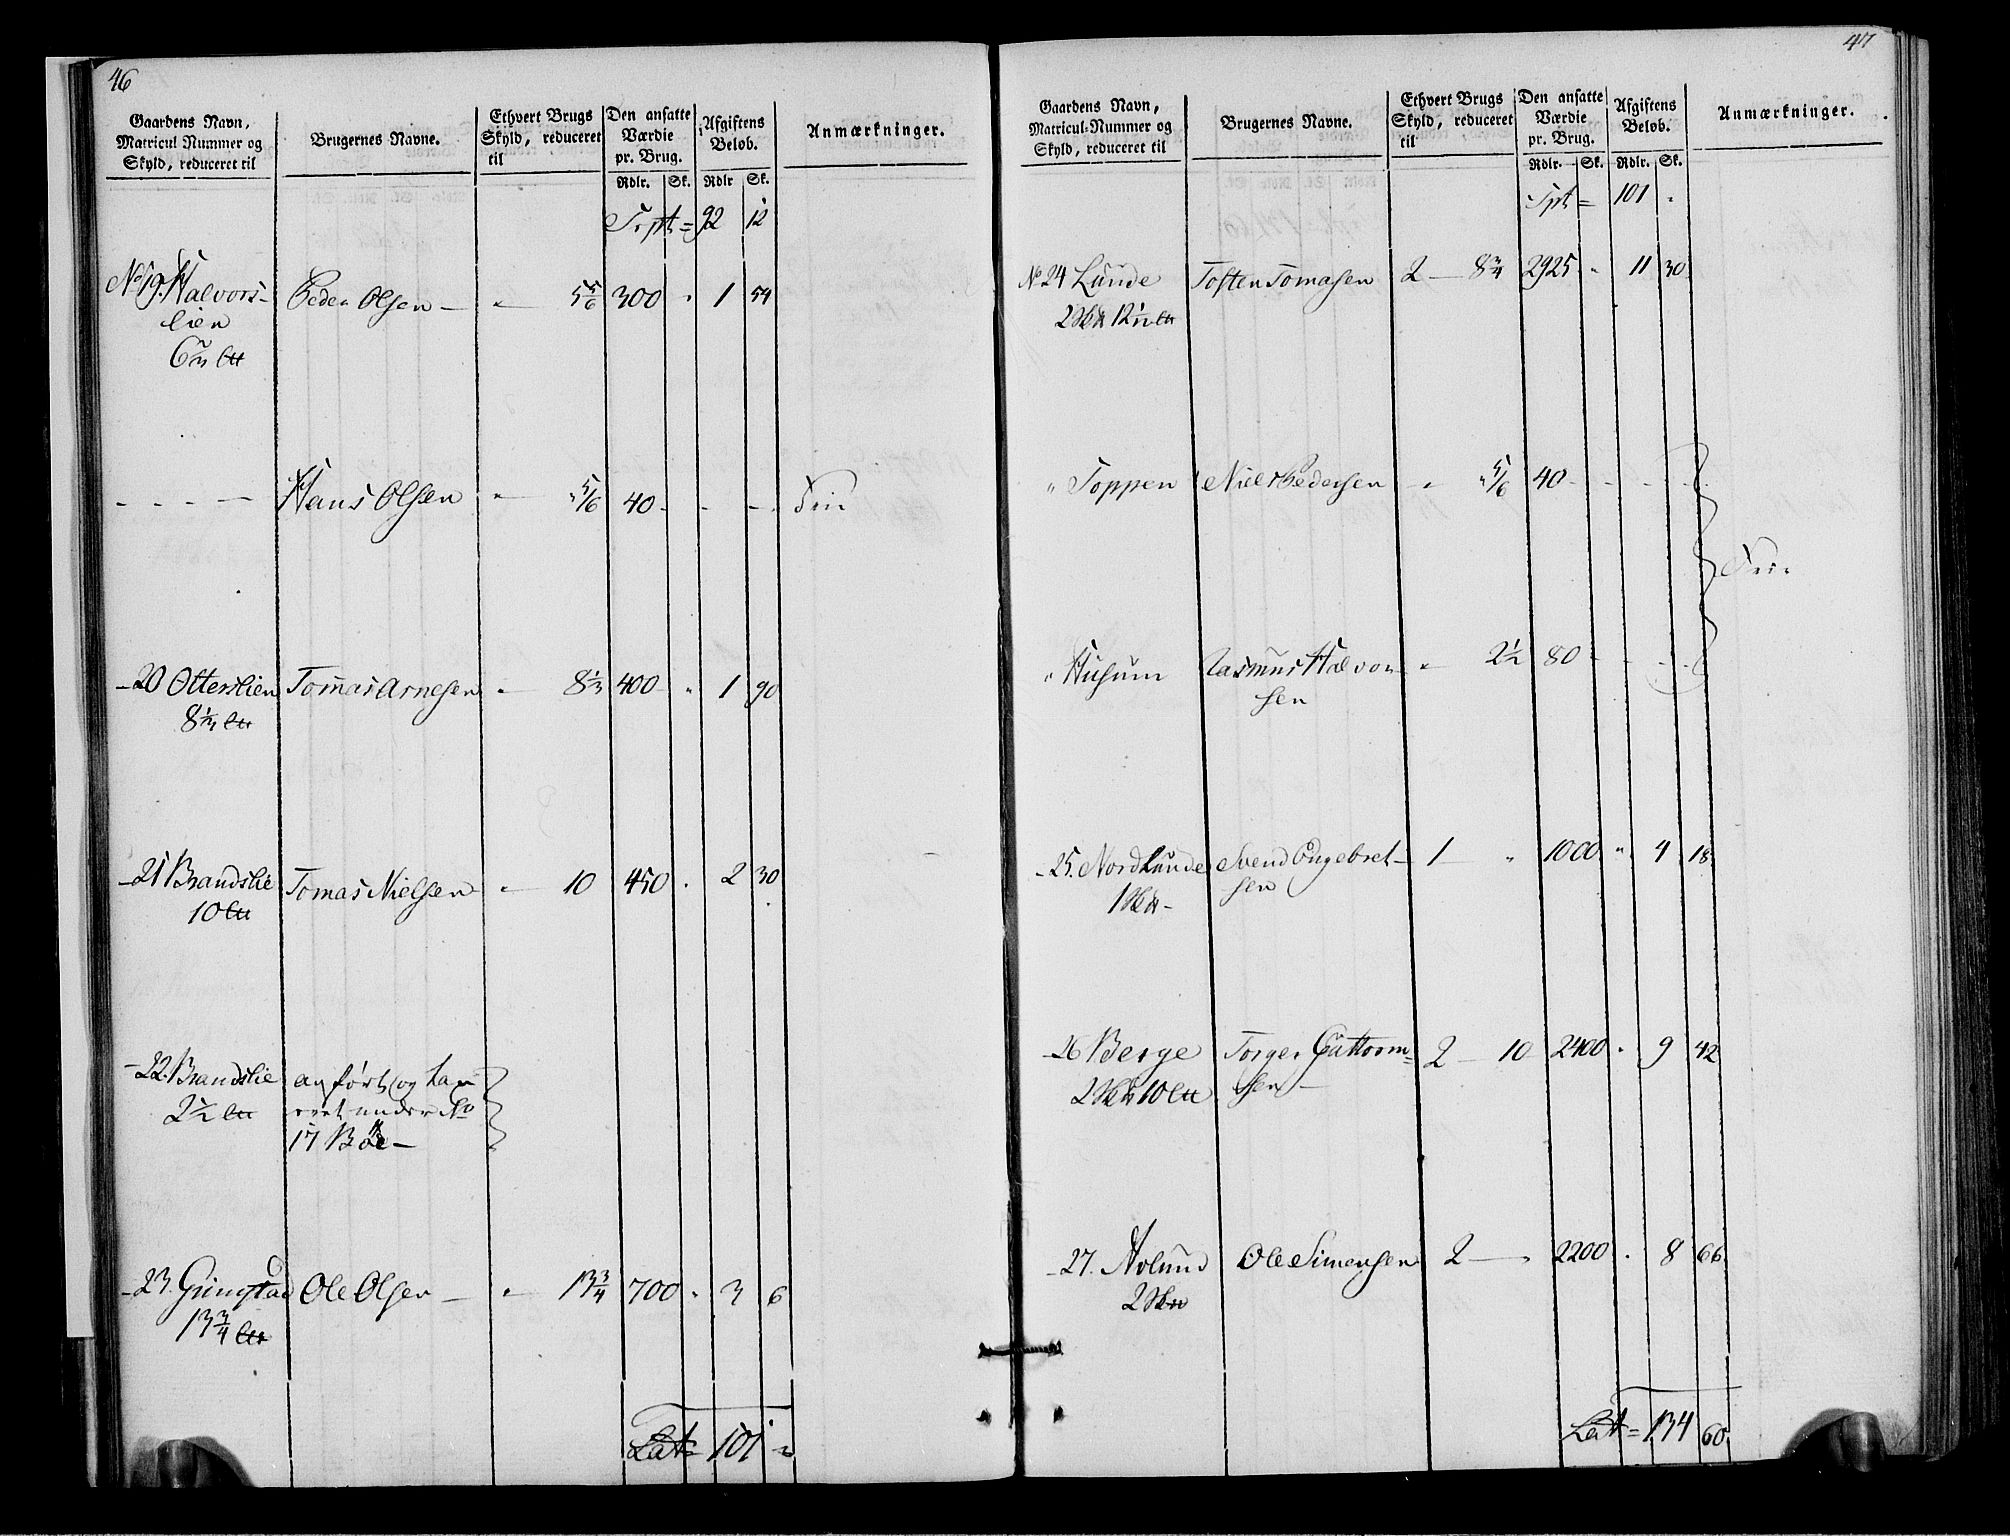 46
Gaardens Navn, Matricul Nummer og Skyld, reduceret til
Brugernes Navne.
Ethvert Brugs Skyld, reduceret til
Den ansatte Værdie pr. Brug.
Afgiftens Beløb.
Anmærkninger.
Rdlr. Sk. Rdlr Sk.
92 12
No 19. Halvors- Peder Olsen — " 5 5/6 300 " 1 54
lien
6 2/3
- - - - Hans Olsen " " 5/6 40 - - - Frie
- 20 Otterslien Tomas Arnesen " 8 1/3 400 " 1 90
8 1/3
- 21 Brandslie Tomas Nielsen " 10 450 " 2 30
10
- 22. Brandslie anført og tax
2 1/2 eret under No
17 Bøe —
- 23. Gringstad Ole Olsen — " 13 3/4 700 " 3 6
13 3/4
Lat = 101 "
47
Gaardens Navn, Matricul-Nummer og Skyld, reduceret til
Brugernes Navne.
Ethvert Brugs Skyld, reduceret til
Den ansatte Værdie pr. Brug.
Afgiftens Beløb.
Anmærkninger.
Rdlr. Sk. Rdlr. Sk.
101 "
No 24 Lunde Tosten Tomasen 2 — 8 3/4 2925 " 11 30
2 12 1/12
" Toppen Niels Pedersen " " 5/6 40 - - - -
Frie
" Husum Rasmus Halvor- " 2 1/2 80 - - - -
sen
- 25. Nordlunde Svend Engebret- 1 — " 1000 " 4 18
1 sen
- 26 Berge Torger Guttorm- 2 — 10 2400 " 9 42
2 10 sen —
- 27. Aolund Ole Simensen 2 — " 2200 " 8 66
2
Lat = 134 60